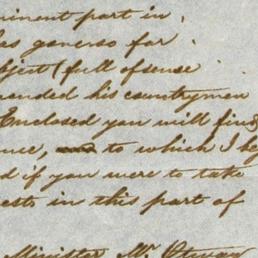 minent part in
as generso far
bject (full of sense
randed his countrymen
Enclosed you will find
nce, to which I beg
d if you were to take
ests in this part of
Minister Mr.